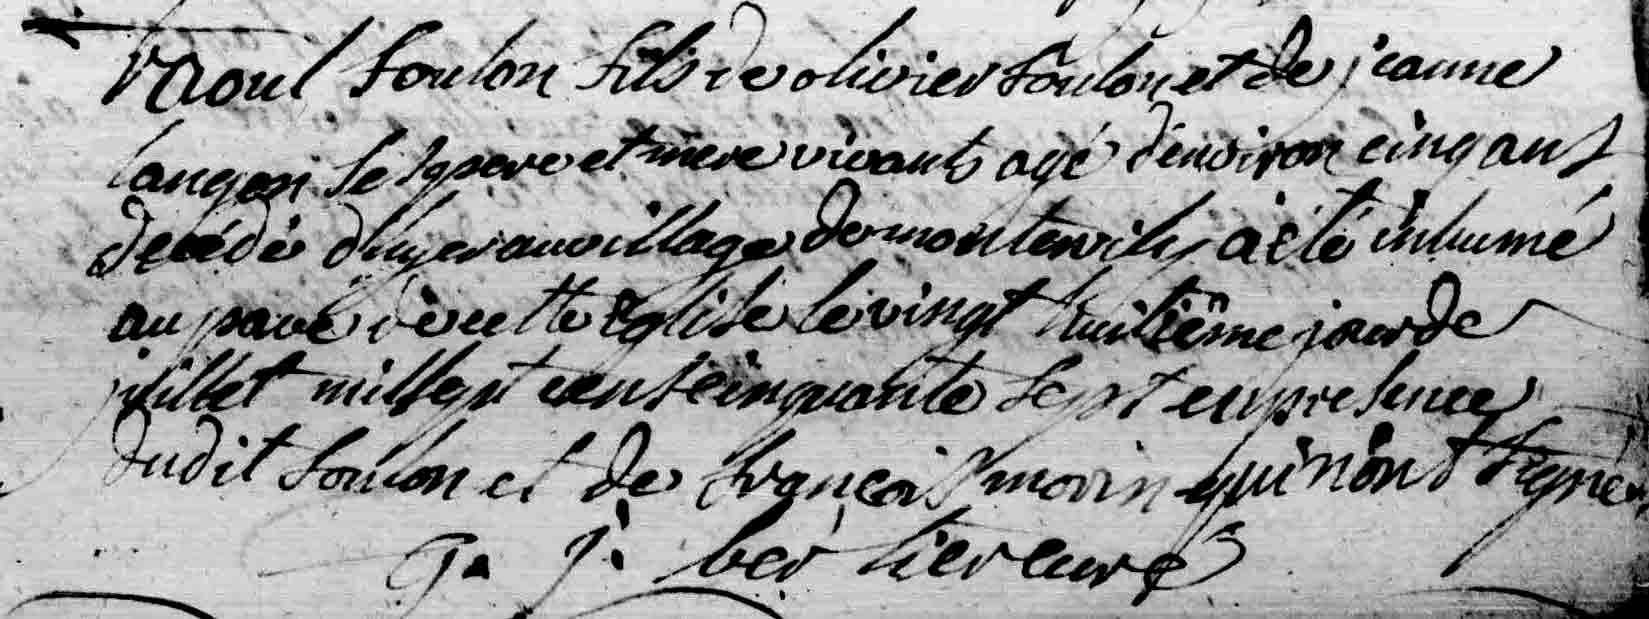 Raoul Soulon fils de olivier Soulon et de jeanne
langan ses pere et mere vivants agé d'environ cinq ans
decédé d'hyer au village de montervily a été inhumé
au pavé de cette église le vingt huitiême jour de
juillet mil sept cent cinquante sept en presence
dudit Soulon et de françois morin qui n'ont signé
G. J. bertier curé